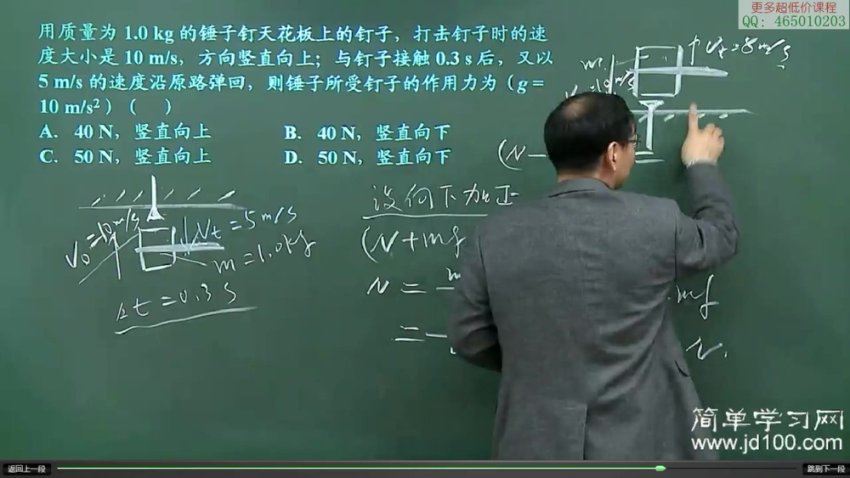 更多超低价课程
QQ: 465010203
用质量为 1.0 kg 的锤子钉天花板上的钉子，打击钉子时的速
度大小是 10 m/s，方向竖直向上；与钉子接触 0.3 s 后，又以
5 m/s 的速度沿原路弹回，则锤子所受钉子的作用力为（g =
10 m/s²）（ ）
A. 40 N，竖直向上 B. 40 N，竖直向下
C. 50 N，竖直向上 D. 50 N，竖直向下
m
(N-
设向下为正
V₀=10m/s
Vt=5m/s
(N+mg
m=1.0kg
N=
mg
Δt=0.3 s
=-
N.
简单学习网
www.jd100.com
返回上一段
跳到下一段